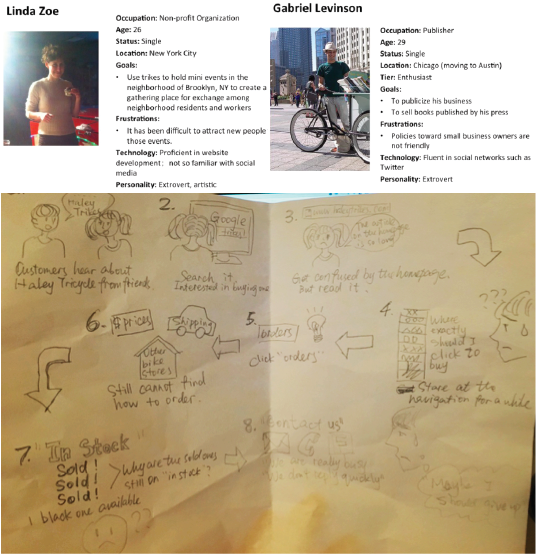 Linda Zoe
Occupation: Non-profit Organization
Age: 26
Status: Single
Location: New York City
Goals:
• Use trikes to hold mini events in the
neighborhood of Brooklyn, NY to create a
gathering place for exchange among
neighborhood residents and workers
Frustrations:
• It has been difficult to attract new people
those events.
Technology: Proficient in website
development; not so familiar with social
media
Personality: Extrovert, artistic
Gabriel Levinson
Occupation: Publisher
Age: 29
Status: Single
Location: Chicago (moving to Austin)
Tier: Enthusiast
Goals:
• To publicize his business
• To sell books published by his press
Frustrations:
• Policies toward small business owners are
not friendly
Technology: Fluent in social networks such as
Twitter
Personality: Extrovert
Haley
Trikes
Customers hear about
Haley Tricycle from friends.
2.
Google
Search it.
Interested in buying one
3.
Get confused by the homepage.
But read it.
4.
Where
exactly
should I
click to
buy
???
Stare at the
navigation for a while
5.
orders
click "orders"
6.
$prices
Shipping
Other
bike
stores
Still cannot find
how to order.
7. "In Stock"
Sold!
Sold!
Sold!
Why are the sold ones
still on "instock"?
1 black one available
??
8. "Contact us"
We are really busy
Maybe I
should give up